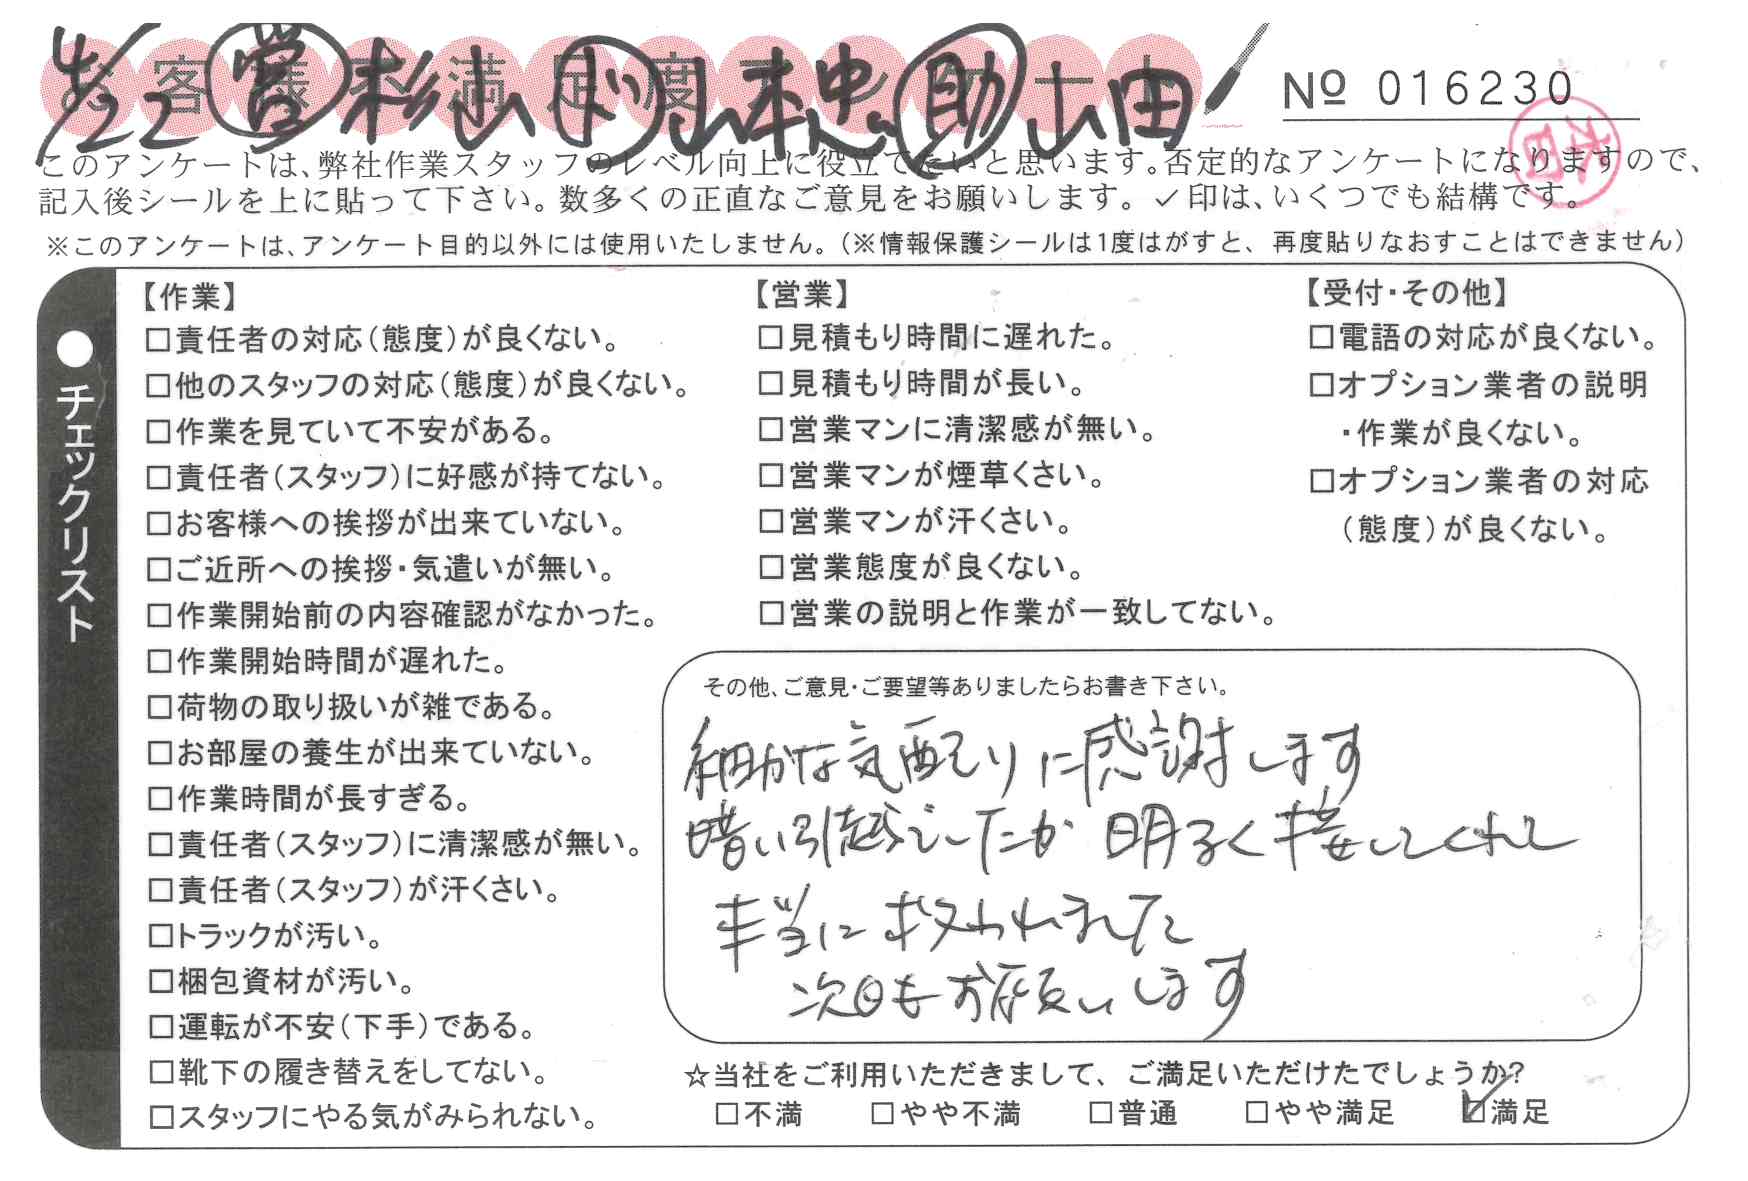 4/22 営 杉山 ド 山本忠 助 大田
お客様満足度アンケート
Nº 016230
本田
このアンケートは、弊社作業スタッフのレベル向上に役立てたいと思います。否定的なアンケートになりますので、
記入後シールを上に貼って下さい。数多くの正直なご意見をお願いします。✓印は、いくつでも結構です。
※このアンケートは、アンケート目的以外には使用いたしません。(※情報保護シールは1度はがすと、再度貼りなおすことはできません)
●チェックリスト
【作業】
□責任者の対応(態度)が良くない。
□他のスタッフの対応(態度)が良くない。
□作業を見ていて不安がある。
□責任者(スタッフ)に好感が持てない。
□お客様への挨拶が出来ていない。
□ご近所への挨拶・気遣いが無い。
□作業開始前の内容確認がなかった。
□作業開始時間が遅れた。
□荷物の取り扱いが雑である。
□お部屋の養生が出来ていない。
□作業時間が長すぎる。
□責任者(スタッフ)に清潔感が無い。
□責任者(スタッフ)が汗くさい。
□トラックが汚い。
□梱包資材が汚い。
□運転が不安(下手)である。
□靴下の履き替えをしてない。
□スタッフにやる気がみられない。
【営業】
□見積もり時間に遅れた。
□見積もり時間が長い。
□営業マンに清潔感が無い。
□営業マンが煙草くさい。
□営業マンが汗くさい。
□営業態度が良くない。
□営業の説明と作業が一致してない。
【受付・その他】
□電話の対応が良くない。
□オプション業者の説明
・作業が良くない。
□オプション業者の対応
(態度)が良くない。
その他、ご意見・ご要望等ありましたらお書き下さい。
細かな気配りに感謝します
暗い引越でしたが 明るく接してくれて
本当に救われました
次回もお願いします
☆当社をご利用いただきまして、ご満足いただけたでしょうか?
□不満 □やや不満 □普通 □やや満足 ☑満足